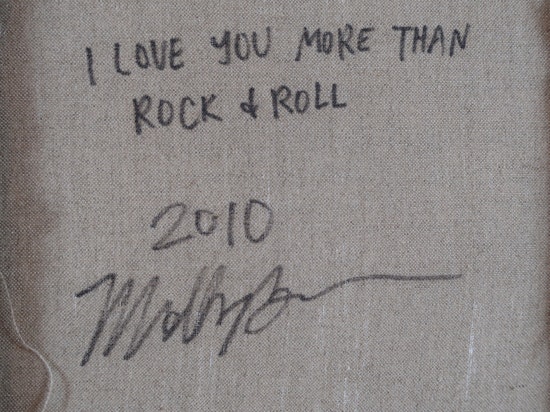 I LOVE YOU MORE THAN
ROCK & ROLL
2010
Molly